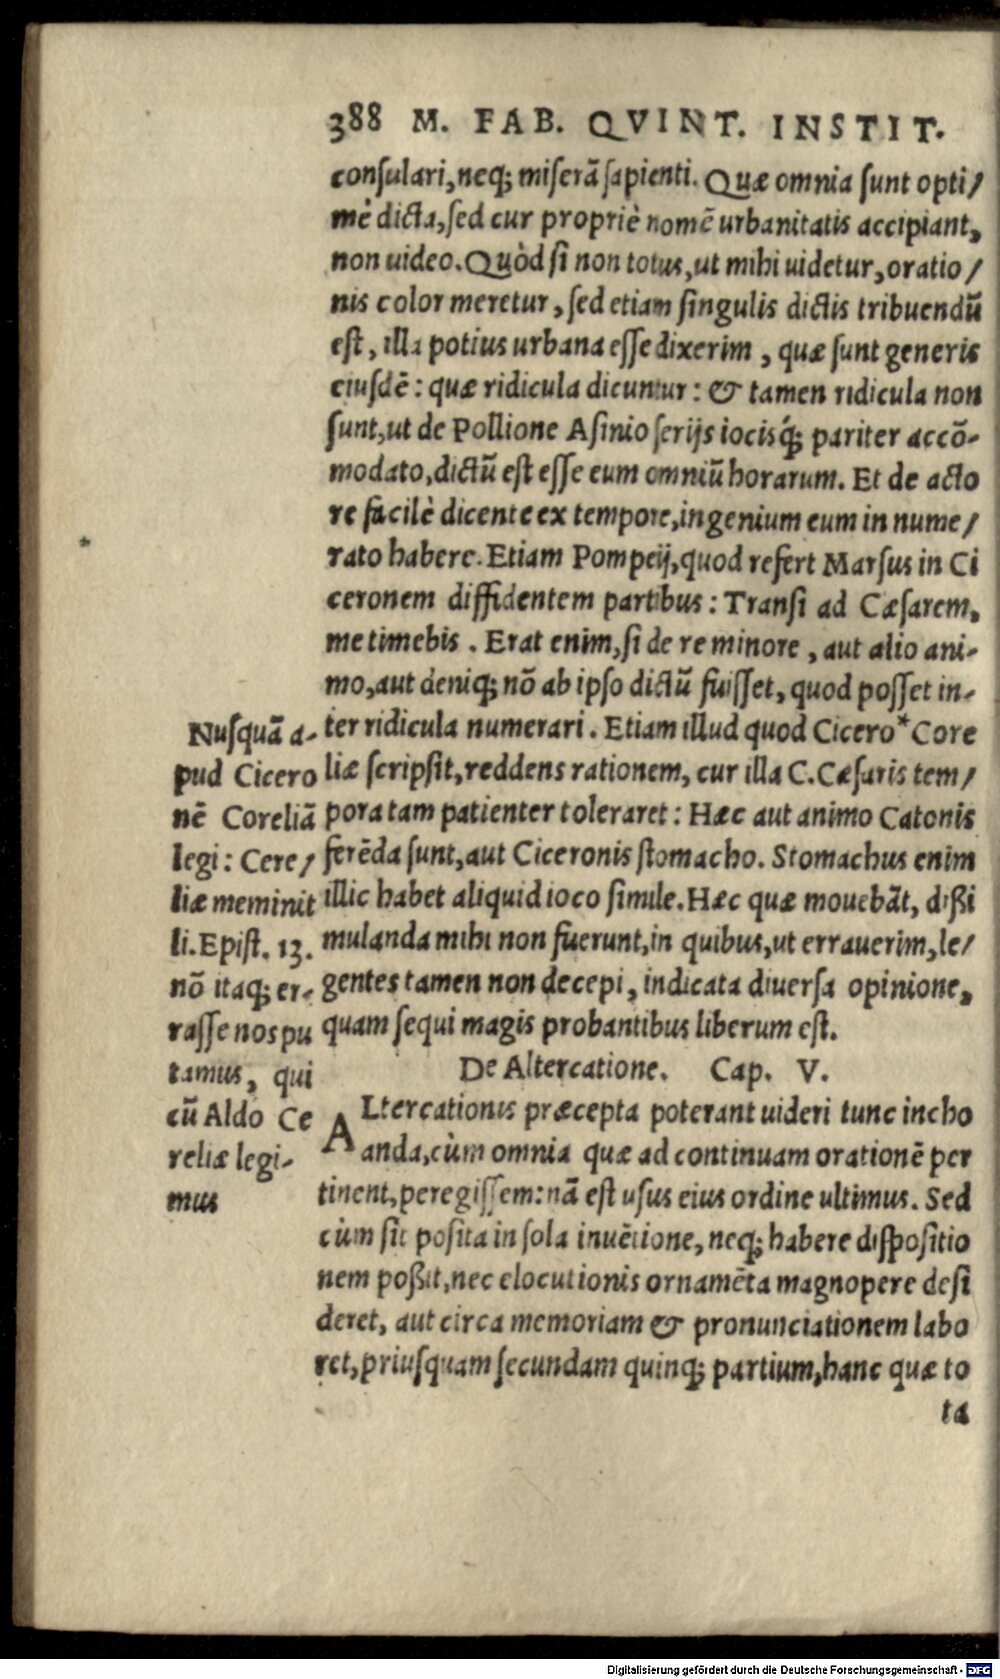 388 M. FAB. QVINT. INSTIT.
conſulari, neq; miſerā ſapienti. Quæ omnia ſunt opti/
mè dicta, ſed cur propriè nomē urbanitatis accipiant,
non uideo. Quòd ſi non totus, ut mihi uidetur, oratio/
nis color meretur, ſed etiam ſingulis dictis tribuendū
eſt, illa potius urbana eſſe dixerim, quæ ſunt generis
eiuſdē: quæ ridicula dicuntur: & tamen ridicula non
ſunt, ut de Pollione Aſinio ſerijs iocisq́; pariter accō-
modato, dictū eſt eſſe eum omniū horarum. Et de acto
re facilè dicente ex tempore, ingenium eum in nume/
rato habere. Etiam Pompeij, quod refert Marſus in Ci
ceronem diffidentem partibus: Tranſi ad Cæſarem,
me timebis. Erat enim, ſi de re minore, aut alio ani-
mo, aut deniq; nō ab ipſo dictū fuiſſet, quod poſſet in-
ter ridicula numerari. Etiam illud quod Cicero* Core
liæ ſcripſit, reddens rationem, cur illa C. Cæſaris tem/
pora tam patienter toleraret: Hæc aut animo Catonis
ferēda ſunt, aut Ciceronis ſtomacho. Stomachus enim
illic habet aliquid ioco ſimile. Hæc quæ mouebāt, dißi
mulanda mihi non fuerunt, in quibus, ut errauerim, le/
gentes tamen non decepi, indicata diuerſa opinione,
quam ſequi magis probantibus liberum eſt.
Nuſquā a-
pud Cicero
nē Coreliā
legi: Cere/
liæ meminit
li. Epiſt. 13.
nō itaq; er-
raſſe nos pu
tamus, qui
cū Aldo Ce
reliæ legi-
mus
De Altercatione. Cap. V.
ALtercationis præcepta poterant uideri tunc incho
anda, cùm omnia quæ ad continuam orationē per
tinent, peregiſſem: nā eſt uſus eius ordine ultimus. Sed
cùm ſit poſita in ſola inuētione, neq; habere diſpoſitio
nem poßit, nec elocutionis ornamēta magnopere deſi
deret, aut circa memoriam & pronunciationem labo
ret, priuſquam ſecundam quinq; partium, hanc quæ to
ta
Digitalisierung gefördert durch die Deutsche Forschungsgemeinschaft - DFG